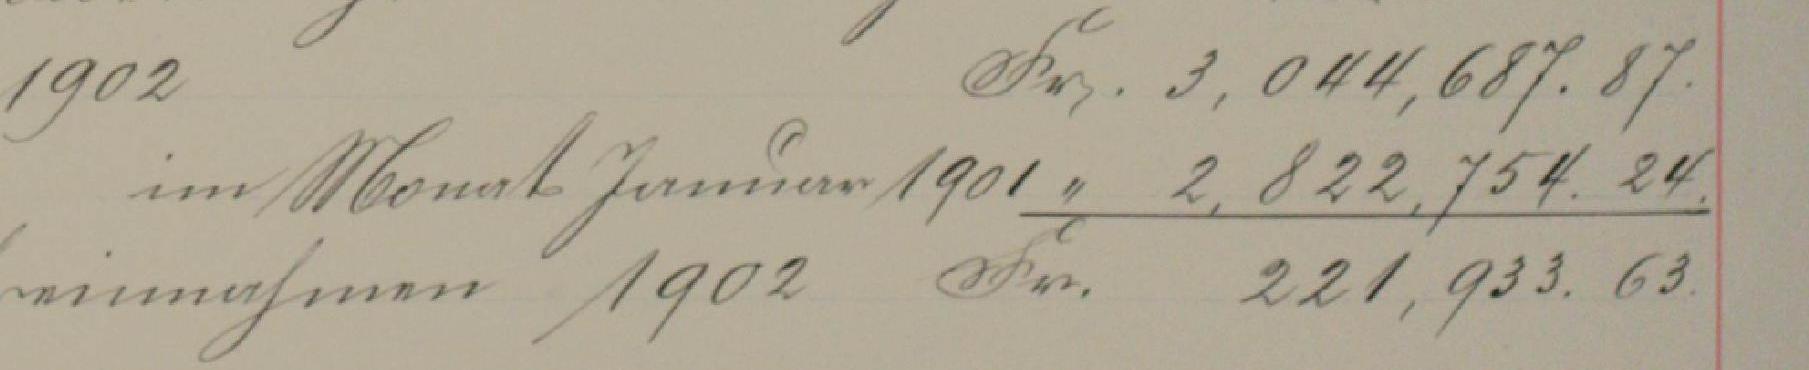 1902 Fr. 3,044,687.87.
im Monat Januar 1901 " 2,822,754.24.
einnahmen 1902 Fr. 221,933.63.